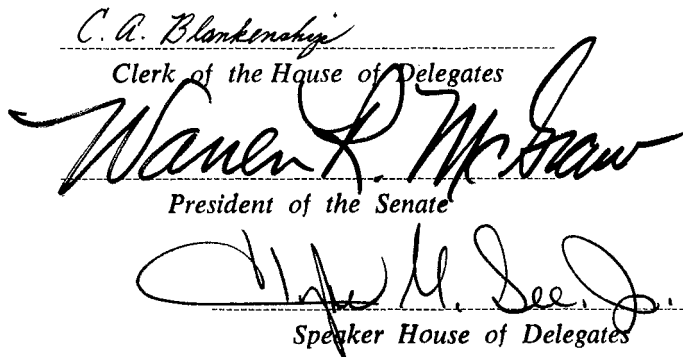 C. A. Blankenship
Clerk of the House of Delegates
Warren R. McGraw
President of the Senate
Clyde M. See, Jr.
Speaker House of Delegates